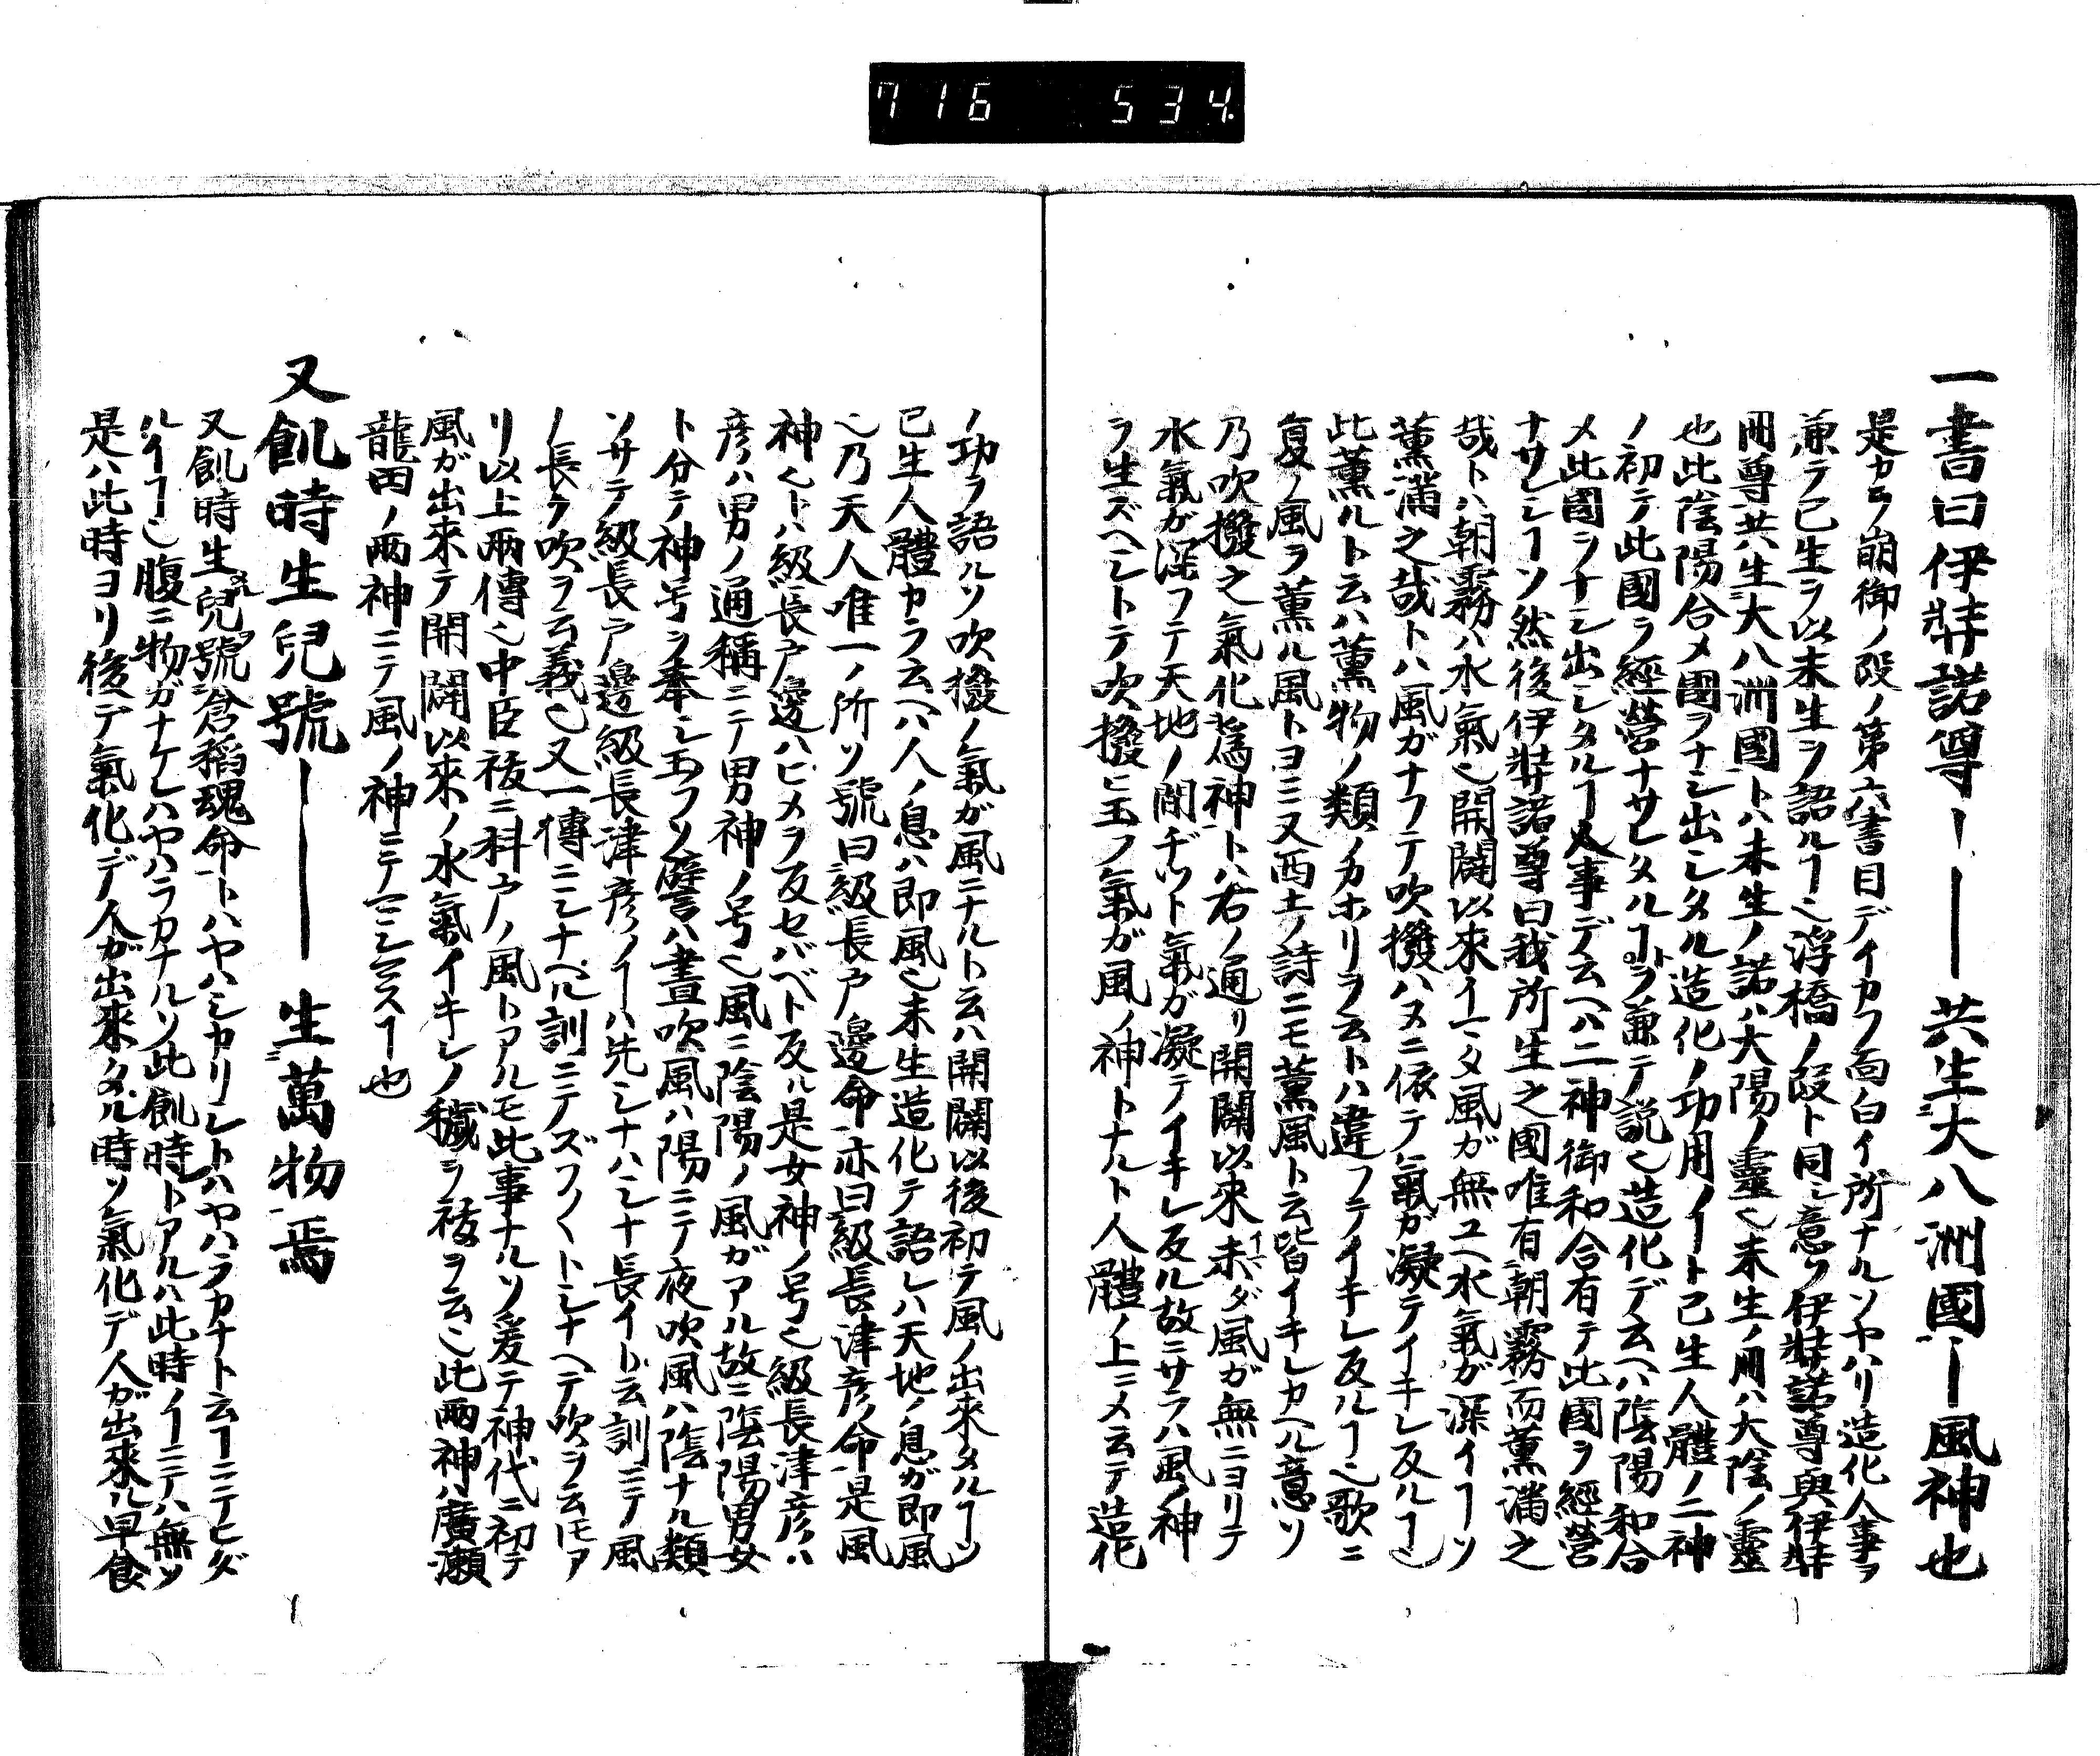 716 534
一書曰伊弉諾尊――共生大八洲國―風神也
是カラ崩御ノ段ノ第六書目デイカフ面白イ所ナルソヤハリ造化人事ヲ
兼テ已生ヲ以未生ヲ語ルヿ也浮橋ノ段ト同シ意ソ伊弉諾尊與伊弉
冊尊共生大八洲國トハ未生ノ諾ハ大陽ノ靈也未生ノ冊ハ大陰ノ靈
也此陰陽合メ國ヲナシ出シタル造化ノ功用ノイト已生人體ノ二神
ノ初テ此國ヲ經營ナサレタルヿヲ兼テ説也造化デ云ヘハ陰陽和合
メ此國ヲナシ出シタルヿ人事デ云ヘハ二神御和合有テ此國ヲ經營
ナサレシヿソ然後伊弉諾尊曰我所生之國唯有朝霧而薫滿之
哉トハ朝霧ハ水氣也開闢以來イマタ風ガ無ユヘ水氣ガ深イヿソ
薫滿之哉トハ風ガナフテ吹撥ハヌニ依テ氣ガ凝テイキレ反ルヿ也
此薫ルト云ハ薫物ノ類ノカホリヲ云トハ違フテイキレ反ルヿ也歌ニ
夏ノ風ヲ薫ル風トヨミ又西土ノ詩ニモ薫風ト云皆イキレカヘル意ソ
乃吹撥之氣化爲神トハ右ノ通リ開闢以來未ダ風ガ無ニヨリテ
水氣ガ深フテ天地ノ間ヂツト氣ガ凝テイキレ反ル故ニサラハ風ノ神
ヲ生ズヘシトテ吹撥ヒ玉フ氣ガ風ノ神トナルト人體ノ上ニメ云テ造化
ノ功ヲ語ルソ吹撥ノ氣ガ風ニナルト云ハ開闢以後初テ風ノ出來タルヿソ
已生人體カラ云ヘハ人ノ息ハ即風也未生造化テ語レハ天地ノ息ガ即風
也乃天人唯一ノ所ソ號曰級長戸邊命亦曰級長津彦命是風
神也トハ級長戸邊ハヒメヲ反セバベト反ル是女神ノ号也級長津彦ハ
彦ハ男ノ通稱ニテ男神ノ号也風ニ陰陽ノ風ガアル故ニ陰陽男女
ト分テ神号ヲ奉シ玉フソ譬ハ晝吹風ハ陽ニテ夜吹風ハ陰ナル類
ソサテ級長戸邊級長津彦ノヿハ先シナハシナ長イト云訓ニテ風
ノ長ク吹ヲ云義也又一傳ニシナヘル訓ニテズフノ〱トシナヘテ吹ヲ云モア
リ以上兩傳也中臣祓ニ科戸ノ風トアルモ此事ナルソ爰テ神代ニ初テ
風ガ出來テ開闢以來ノ水氣イキレノ穢ヲ祓ヲ云也此兩神ハ廣瀬
龍田ノ兩神ニテ風ノ神ニテマシマスヿ也
又飢時生兒號―― 生萬物焉
又飢時生兒號倉稻魂命トハヤハシカリシトハヤハラカナト云ヿニテヒダ
ルイヿ也腹ニ物ガナケレハヤハラカナルソ此飢時トアルハ此時ノヿニテハ無ソ
是ハ此時ヨリ後デ氣化デ人ガ出來タル時ソ氣化デ人ガ出來ル早食